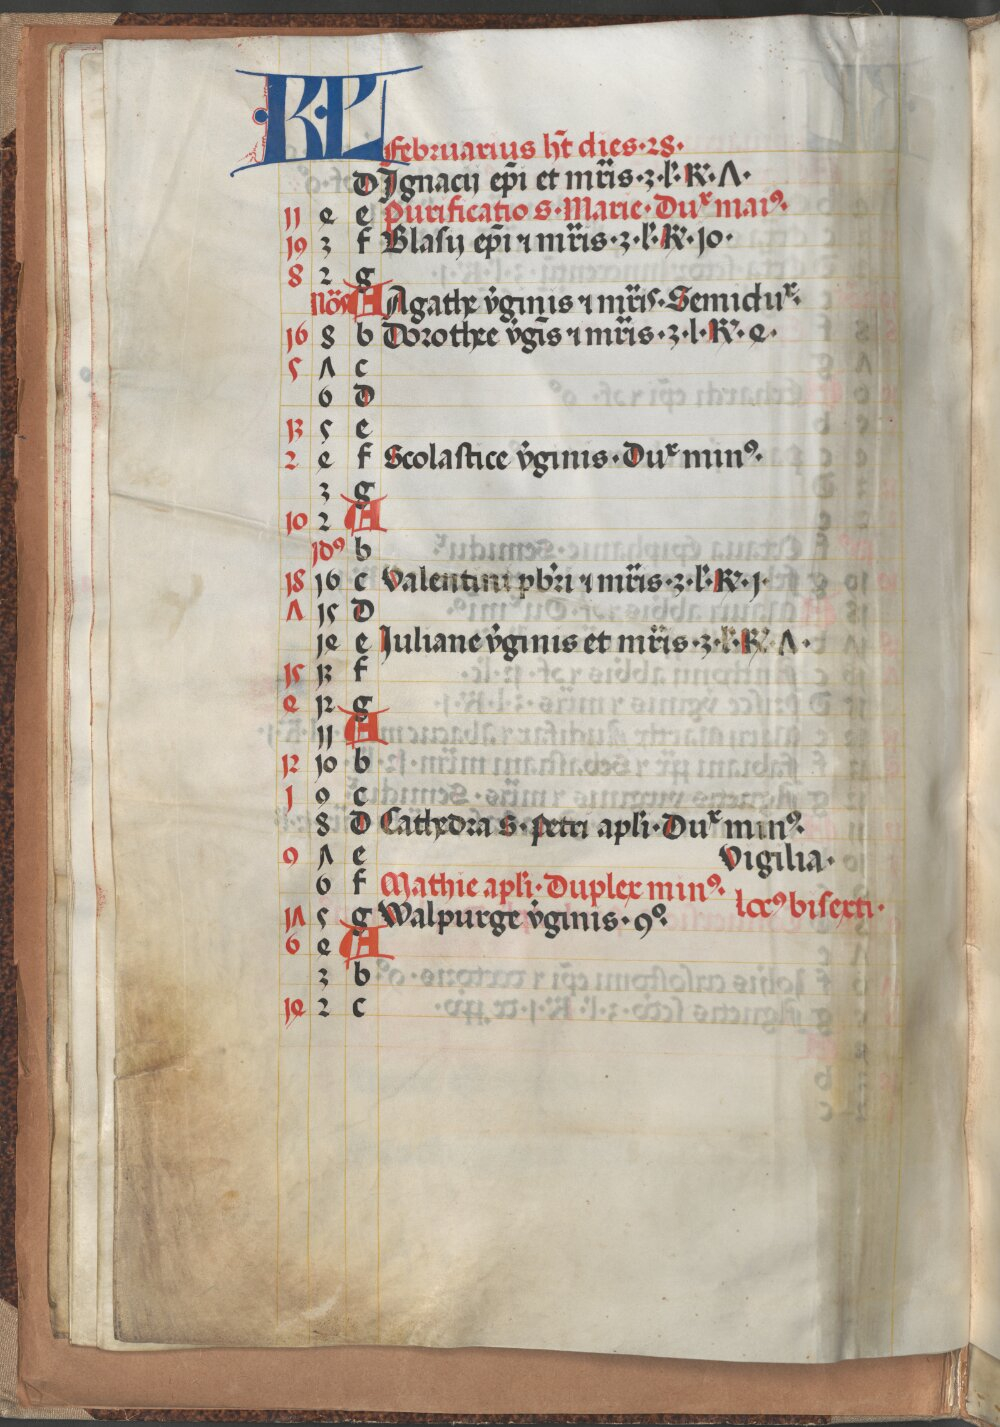 KL
Februarius hꝫt dies·28·
d Ignacij ep̄i et mr̄is·3·l̕·R̕·Λ·
11 e e Purificatio S·Marie·Duˣ maiꝰ·
19 3 f Blasij ep̄i ⁊ mr̄is·3·l̕·R̕·10·
8 2 g
Nōs A Agathe v̕ginis ⁊ mr̄is·Semiduˣ·
16 8 b Dorothee v̕gīs ⁊ mr̄is·3·l·R̕·e·
5 Λ c
6 d
13 5 e
2 e f Scolastice v̕ginis·Duˣ minꝰ·
3 g
10 2 A
Idꝰ b
18 16 c Valentini pb̄ri ⁊ mr̄is·3·l̕·R̕·1·
Λ 15 d
1e e Juliane v̕ginis et mr̄is·3·l̕·R̕·Λ·
15 13 f
e 12 g
11 A
12 10 b
1 9 c
8 d Cathedra S·Petri apl̄i·Duˣ minꝰ·
9 Λ e Vigilia·
6 f Mathie apl̄i·Duplex minꝰ·
locꝰ bisexti·
1Λ 5 g Walpurge v̕ginis·9º·
6 e A
3 b
1e 2 c